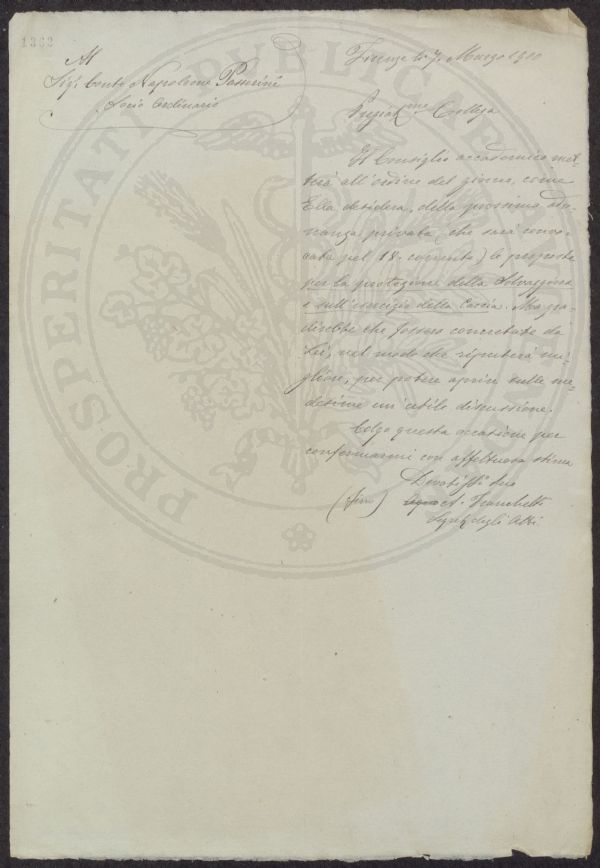 1362
Al
Sig. Conte Napoleone Passerini
Socio Ordinario
Firenze li 7. Marzo 1900
Pregiat.mo Collega
Il Consiglio accademico met-
terà all'ordine del giorno, come
Ella desidera, della prossima adu-
nanza privata (che sarà convo-
cata pel 18. corrente) le proposte
per la protezione della Selvaggina
e sull'esercizio della Caccia. Ma gra-
direbbe che fossero concretate da
Lei, nel modo che reputerà mi-
gliore, per potere aprire sulle me-
desime un'utile discussione.
Colgo questa occasione per
confermarmi con affettuosa stima
Devotiss. suo
(firm) A. Franchetti
Segret. degli Atti
PROSPERITATI PUBLICAE AUGENDAE